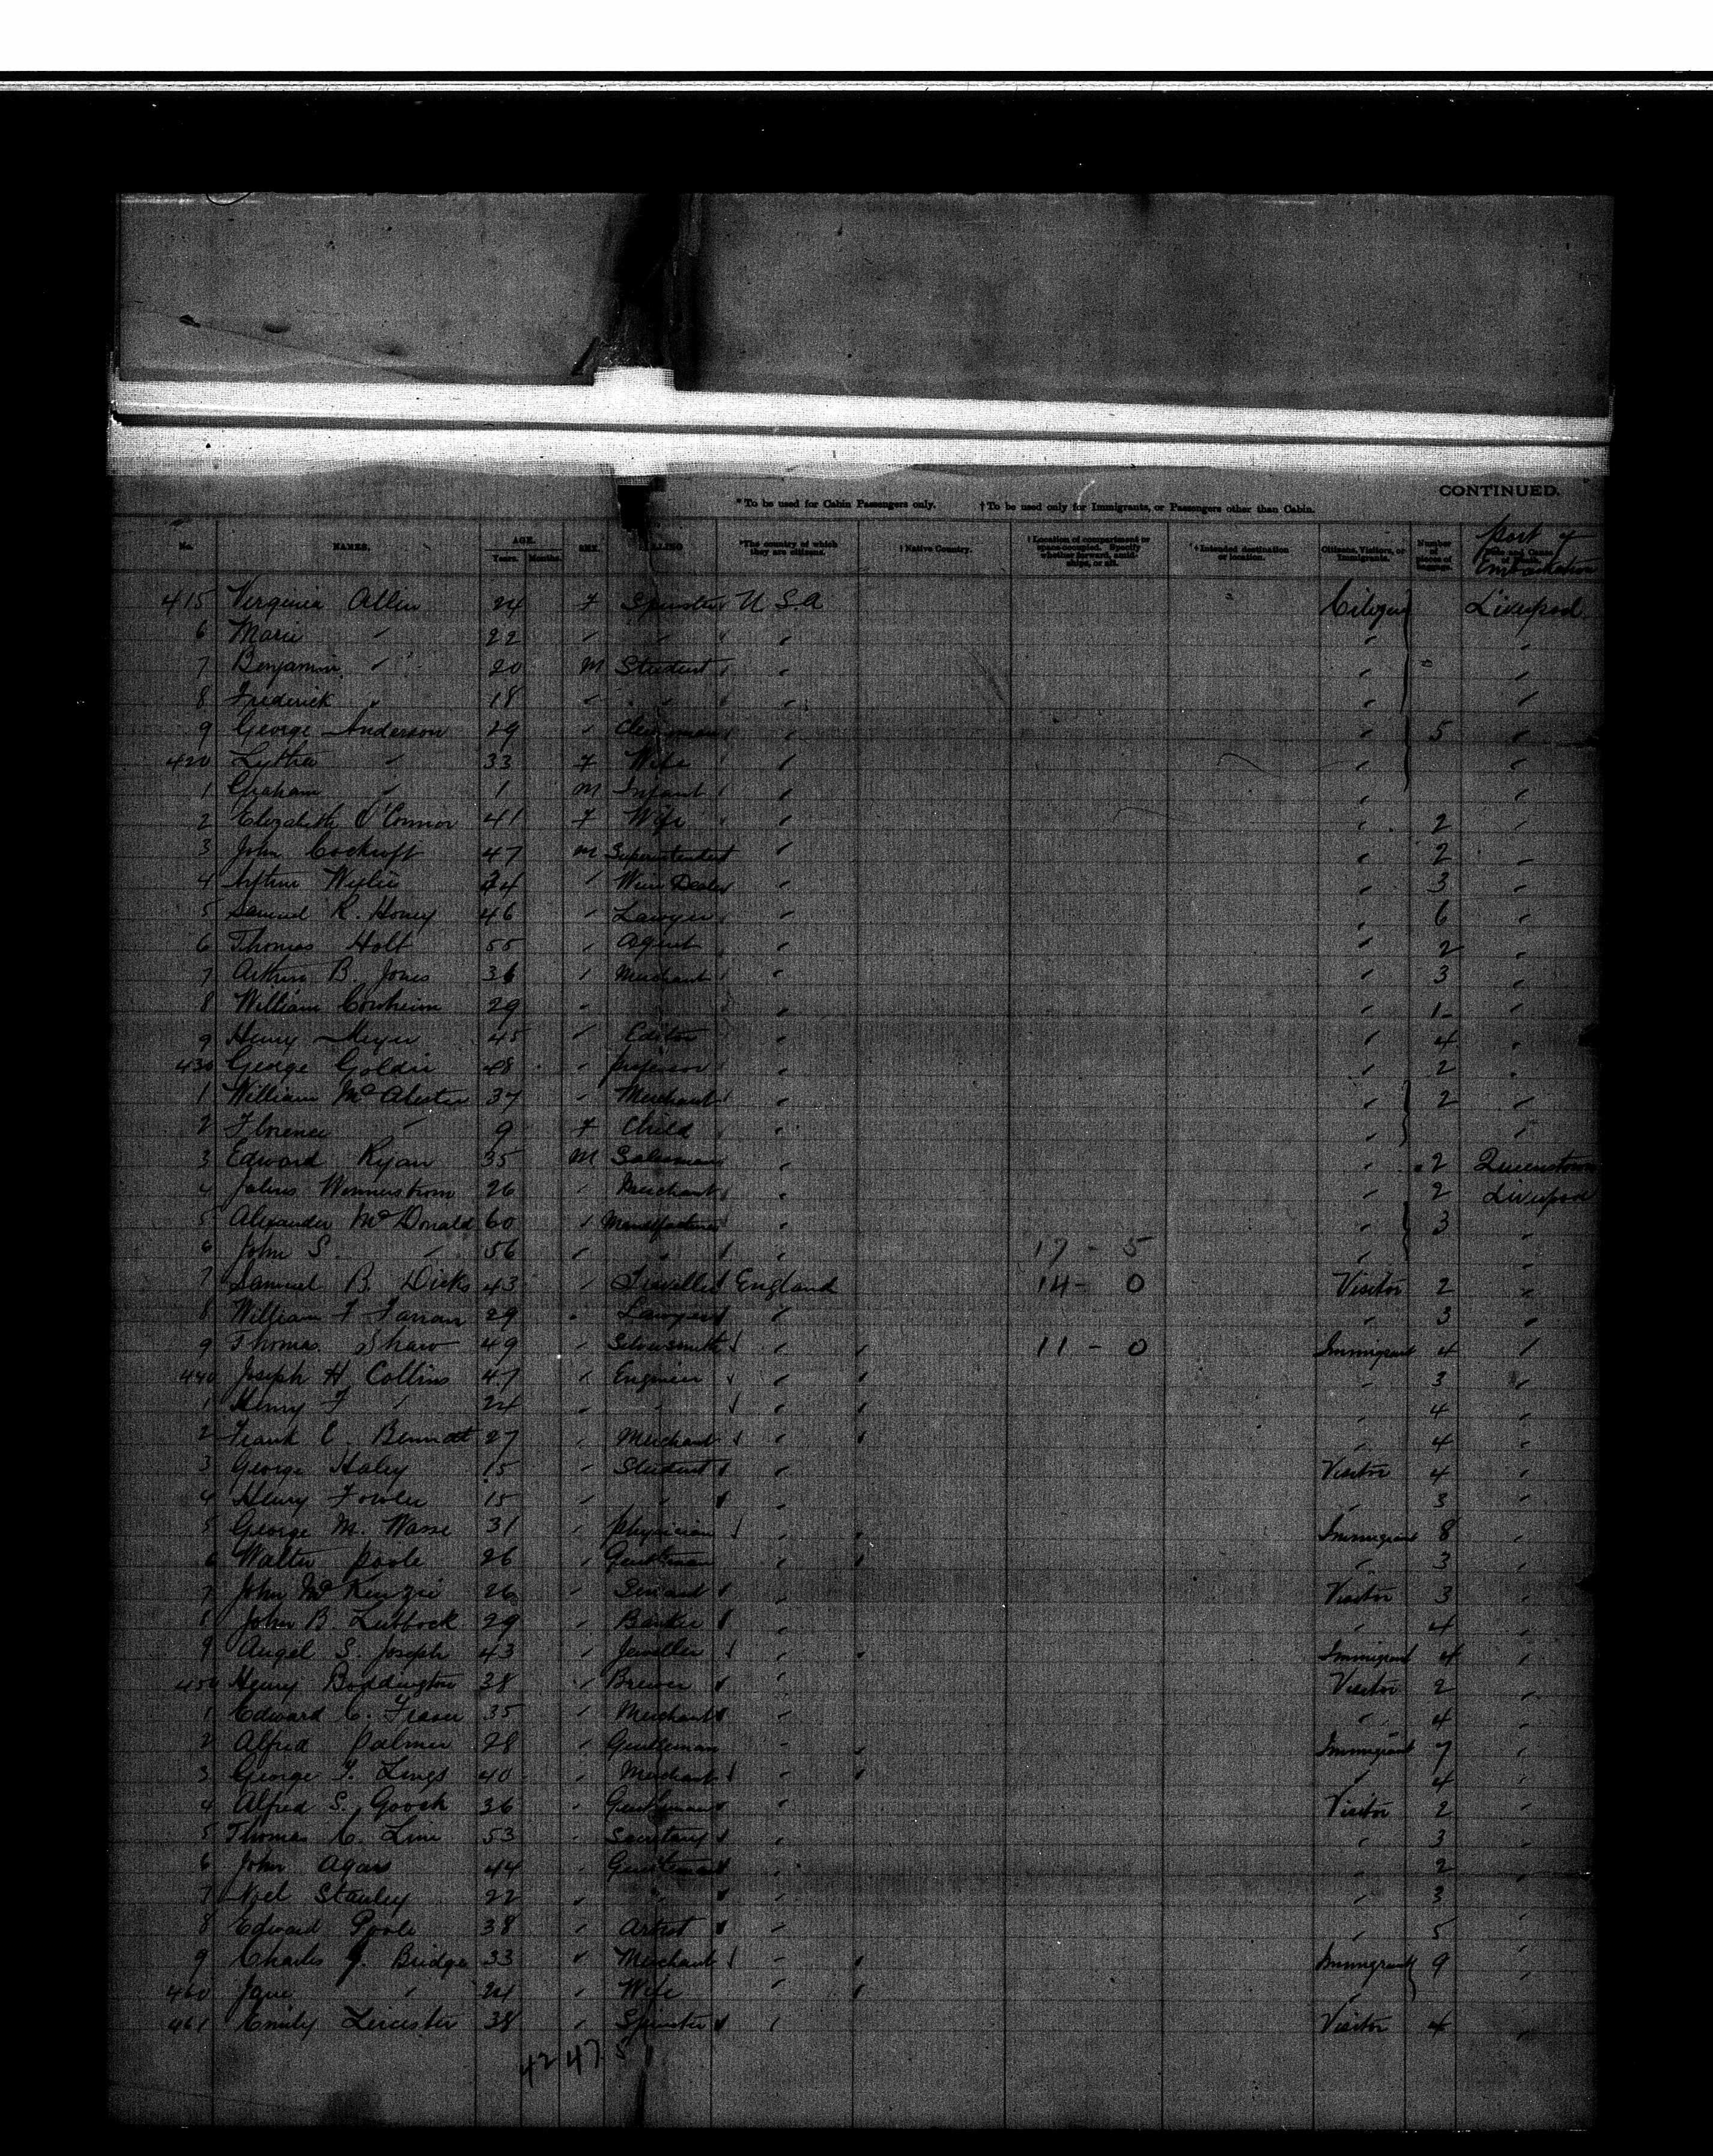 CONTINUED.
*To be used for Cabin Passengers only. †To be used only for Immigrants, or Passengers other than Cabin.
No. NAMES. AGE. Years. Months. SEX. CALLING *The country of which they are citizens. †Native Country. †Location of compartment or space occupied. Specify whether forward, amidships, or aft. †Intended destination or location. Citizens, Visitors, or Immigrants. Number of pieces of baggage. Port of Embarkation
415 Virginia Allen 24 F Spinster U S A Citizen Liverpool
6 Marie " 22 " " " " " "
7 Benjamin " 20 M Student " " "
8 Frederick " 18 " " " " "
9 George Anderson 29 " Clergyman " " 5 "
420 Lytha " 33 F Wife " " "
1 Graham " 1 M Infant " " "
2 Elizabeth O'Connor 41 F Wife " " 2 "
3 John Cockroft 47 M Superintendent " " 2 "
4 Wylie " Dealer " " 3 "
5 Samuel R. Honey 46 " Lawyer " " 6 "
6 Thomas Holt 55 " Agent " " 2 "
7 Arthur B. Jones 36 " Merchant " " 3 "
8 William 29 " " " " 1 "
9 Henry Meyer 45 " Editor " " 4 "
430 George Goldie 48 " professor " " 2 "
1 William McAlester 37 " Merchant " " 2 "
2 Florence " 9 F Child " " "
3 Edward Ryan 35 M Salesman " " 2 Queenstown
4 Wennerstrom 26 " Merchant " " 2 Liverpool
5 Alexander McDonald 60 " Manufacturer " " 3 "
6 John S. " 56 " " " 17 - 5 " "
7 Samuel B. Dicks 43 " Traveller England 14 - 0 Visitor 2 "
8 William F Farran 29 " Lawyer " " 3 "
9 Thomas Shaw 49 " Silversmith " " 11 - 0 Immigrant 4 "
440 Joseph H Collins 47 " Engineer " " " 3 "
1 Henry F " 24 " " " " " 4 "
2 Frank C Bennett 27 " Merchant " " " 4 "
3 George Haley 15 " Student " Visitor 4 "
4 Henry Fowler 15 " " " " 3 "
5 George M. Wasse 31 " physician " " Immigrant 8 "
6 Walter Poole 26 " Gentleman " " " 3 "
7 John McKenzie 26 " Servant " Visitor 3 "
8 John B. Lubbock 29 " Banker " " 4 "
9 Angel S. Joseph 43 " Jeweller " " Immigrant 4 "
450 Henry Boddington 38 " Brewer " Visitor 2 "
1 Edward C. Fraser 35 " Merchant " " 4 "
2 Alfred Palmer 28 " Gentleman " " Immigrant 7 "
3 George T. Lings 40 " Merchant " " " 4 "
4 Alfred S. Gooch 36 " Gentleman " Visitor 2 "
5 Thomas C. Line 53 " Secretary " " 3 "
6 John Agars 44 " Gentleman " " 2 "
7 Noel Stanley 22 " " " " 3 "
8 Edward Poole 38 " Artist " " 5 "
9 Charles J. Bridge 33 " Merchant " " Immigrant 9 "
460 Jane " 24 " Wife " " " "
461 Emily Leicester 38 " Spinster " Visitor 4 "
42 47 5